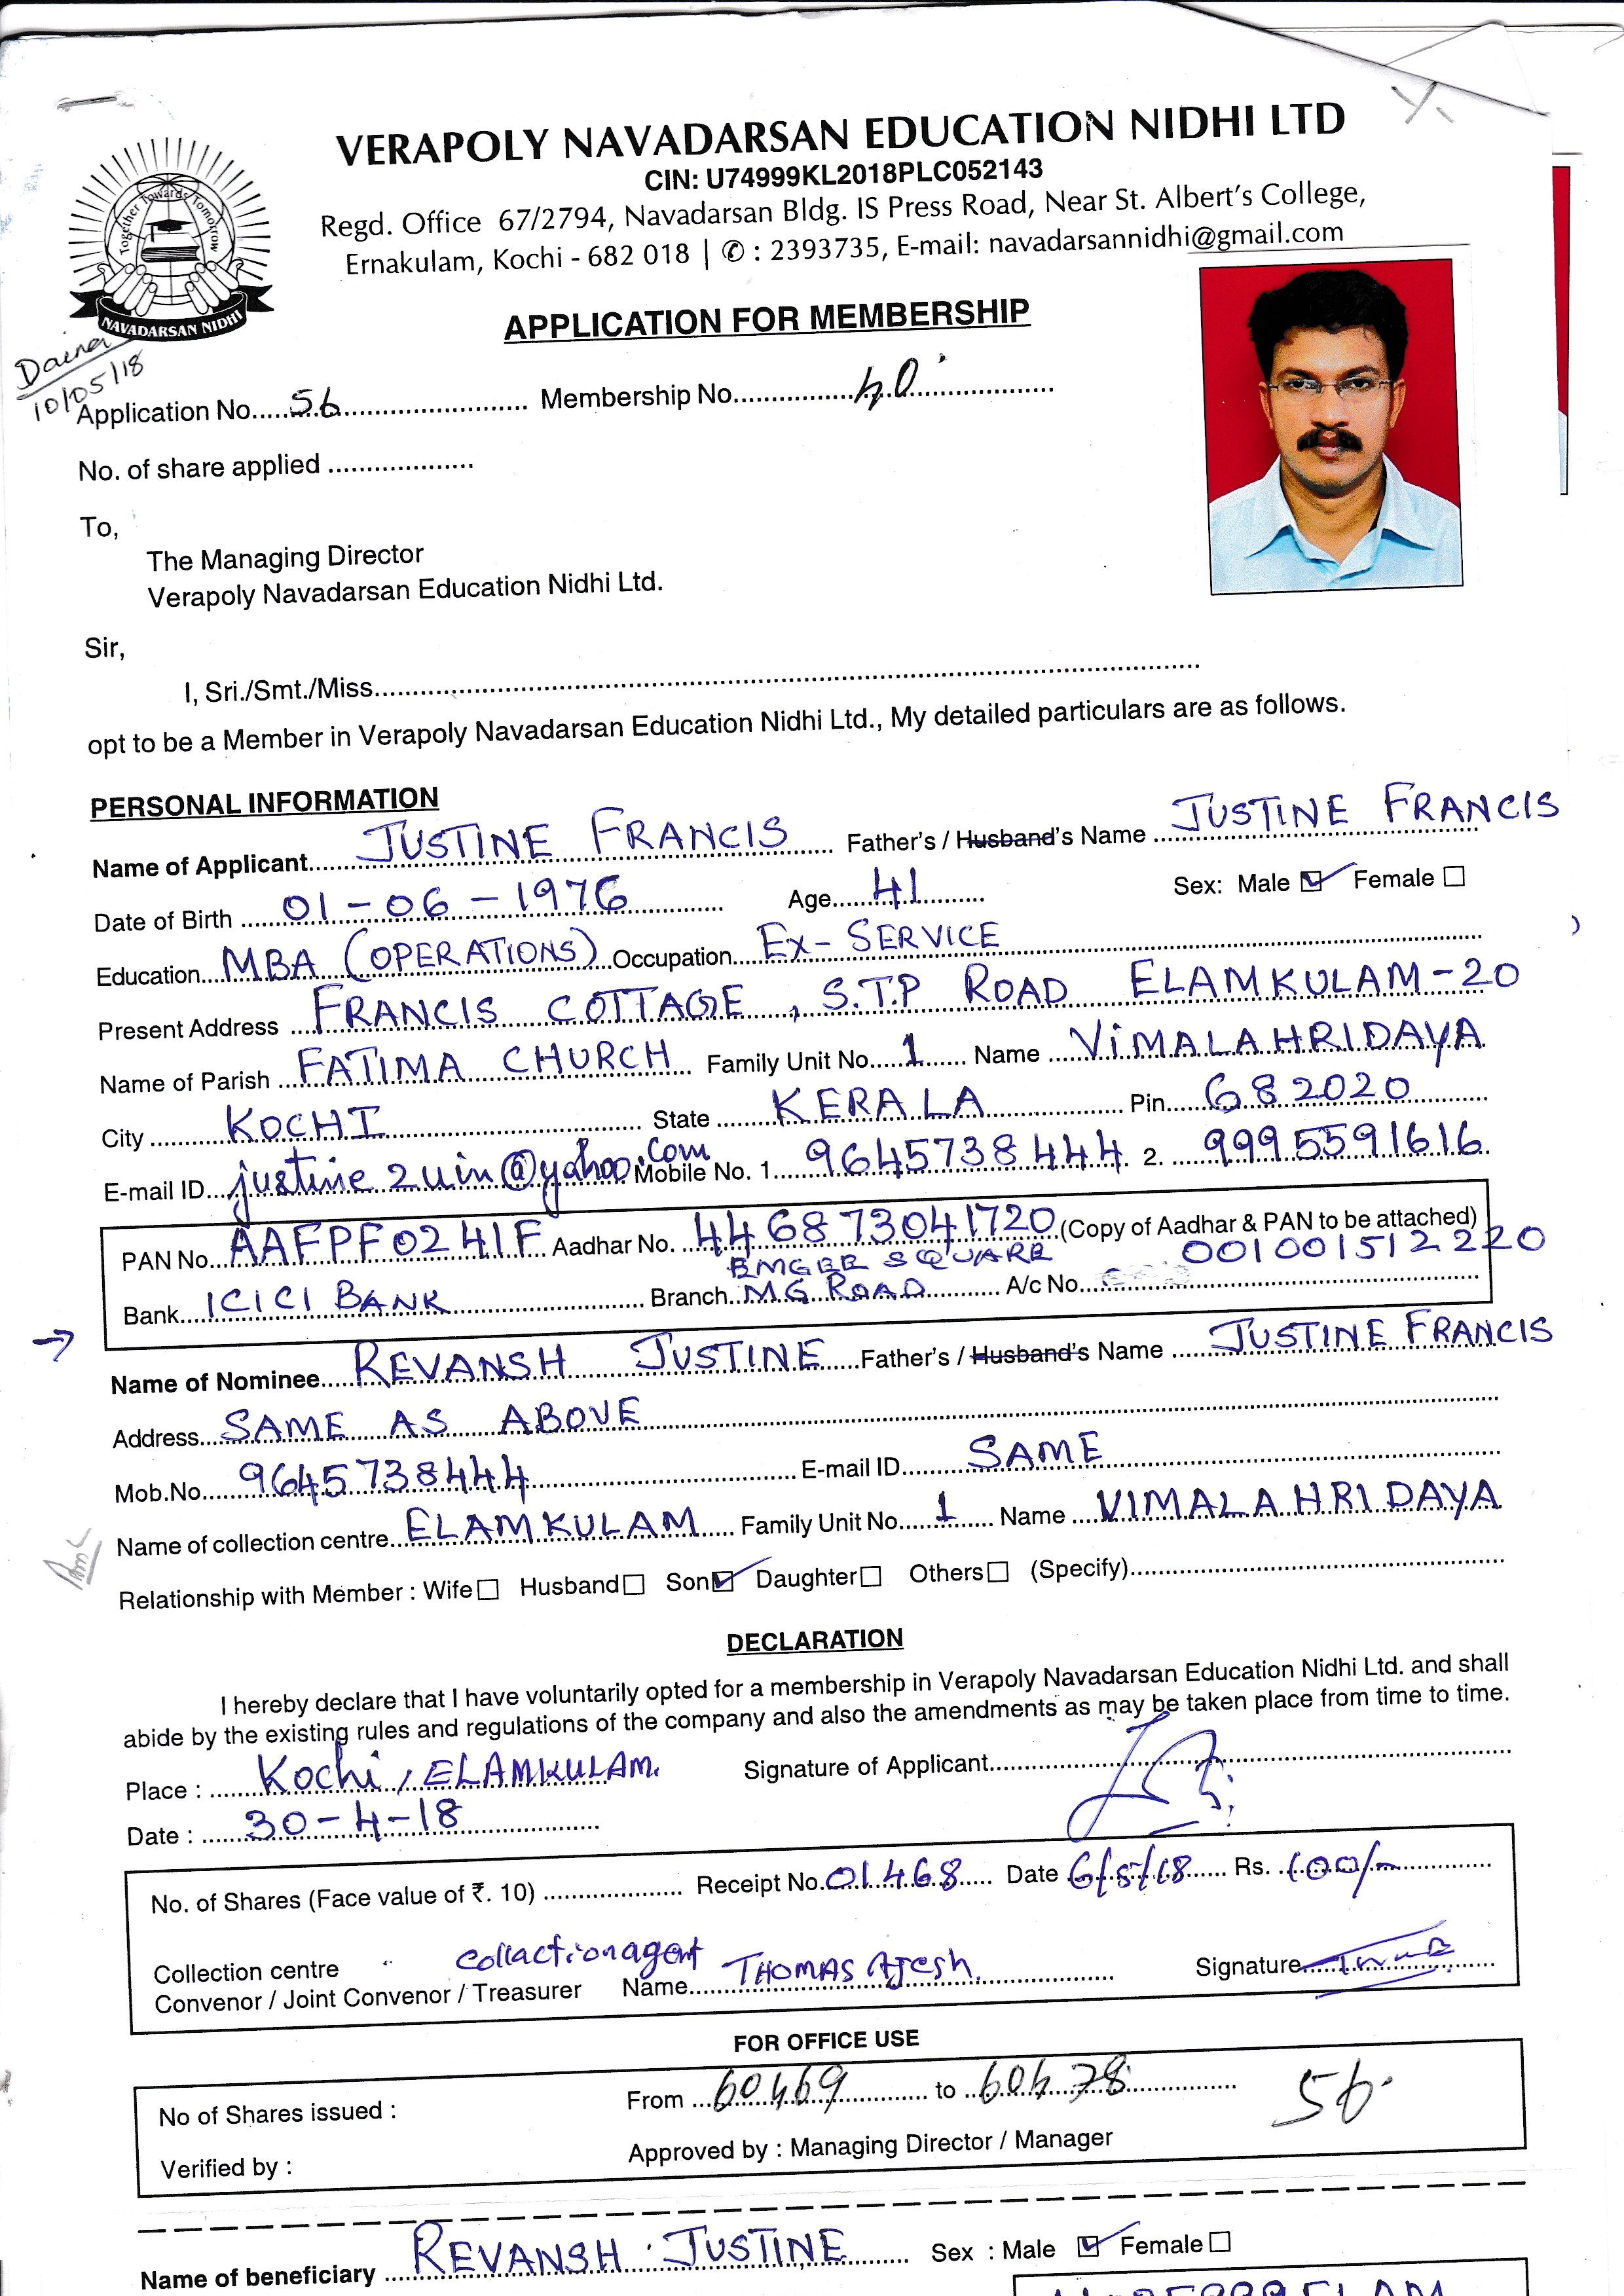 VERAPOLY NAVADARSAN EDUCATION NIDHI LTD
CIN: U74999KL2018PLC052143
Regd. Office 67/2794, Navadarsan Bldg. IS Press Road, Near St. Albert's College,
Ernakulam, Kochi - 682 018 | ✆ : 2393735, E-mail: navadarsannidhi@gmail.com
Together Towards Tomorrow
NAVADARSAN NIDHI
APPLICATION FOR MEMBERSHIP
10/05/18
Application No. 56 Membership No.
No. of share applied
To,
The Managing Director
Verapoly Navadarsan Education Nidhi Ltd.
Sir,
I, Sri./Smt./Miss
opt to be a Member in Verapoly Navadarsan Education Nidhi Ltd., My detailed particulars are as follows.
PERSONAL INFORMATION
Name of Applicant JUSTINE FRANCIS Father's / Husband's Name JUSTINE FRANCIS
Date of Birth 01-06-1976 Age 41 Sex: Male Female
Education MBA (OPERATIONS) Occupation EX-SERVICE
Present Address FRANCIS COTTAGE, S.T.P ROAD ELAMKULAM-20
Name of Parish FATIMA CHURCH Family Unit No. 1 Name VIMALA HRIDAYA
City KOCHI State KERALA Pin 682020
E-mail ID justine2uin@yahoo.com Mobile No. 1. 9645738444 2. 9995591616
PAN No. AAFPF0241F Aadhar No. 446873041720 (Copy of Aadhar & PAN to be attached)
Bank ICICI BANK Branch EMGEE SQUARE MG ROAD A/c No. 001001512220
Name of Nominee REVANSH JUSTINE Father's / Husband's Name JUSTINE FRANCIS
Address SAME AS ABOVE
Mob.No. 9645738444 E-mail ID SAME
Name of collection centre ELAMKULAM Family Unit No. 1 Name VIMALA HRIDAYA
Relationship with Member : Wife Husband Son Daughter Others (Specify)
DECLARATION
I hereby declare that I have voluntarily opted for a membership in Verapoly Navadarsan Education Nidhi Ltd. and shall
abide by the existing rules and regulations of the company and also the amendments as may be taken place from time to time.
Place : Kochi, ELAMKULAM. Signature of Applicant
Date : 30-4-18
No. of Shares (Face value of ₹. 10) Receipt No. 01468 Date 6/5/18 Rs. 100/-
Collection centre collactionagent
Convenor / Joint Convenor / Treasurer Name THOMAS Ajesh. Signature
FOR OFFICE USE
No of Shares issued : From 60469 to 60478 56
Verified by : Approved by : Managing Director / Manager
Name of beneficiary REVANSH JUSTINE Sex : Male Female